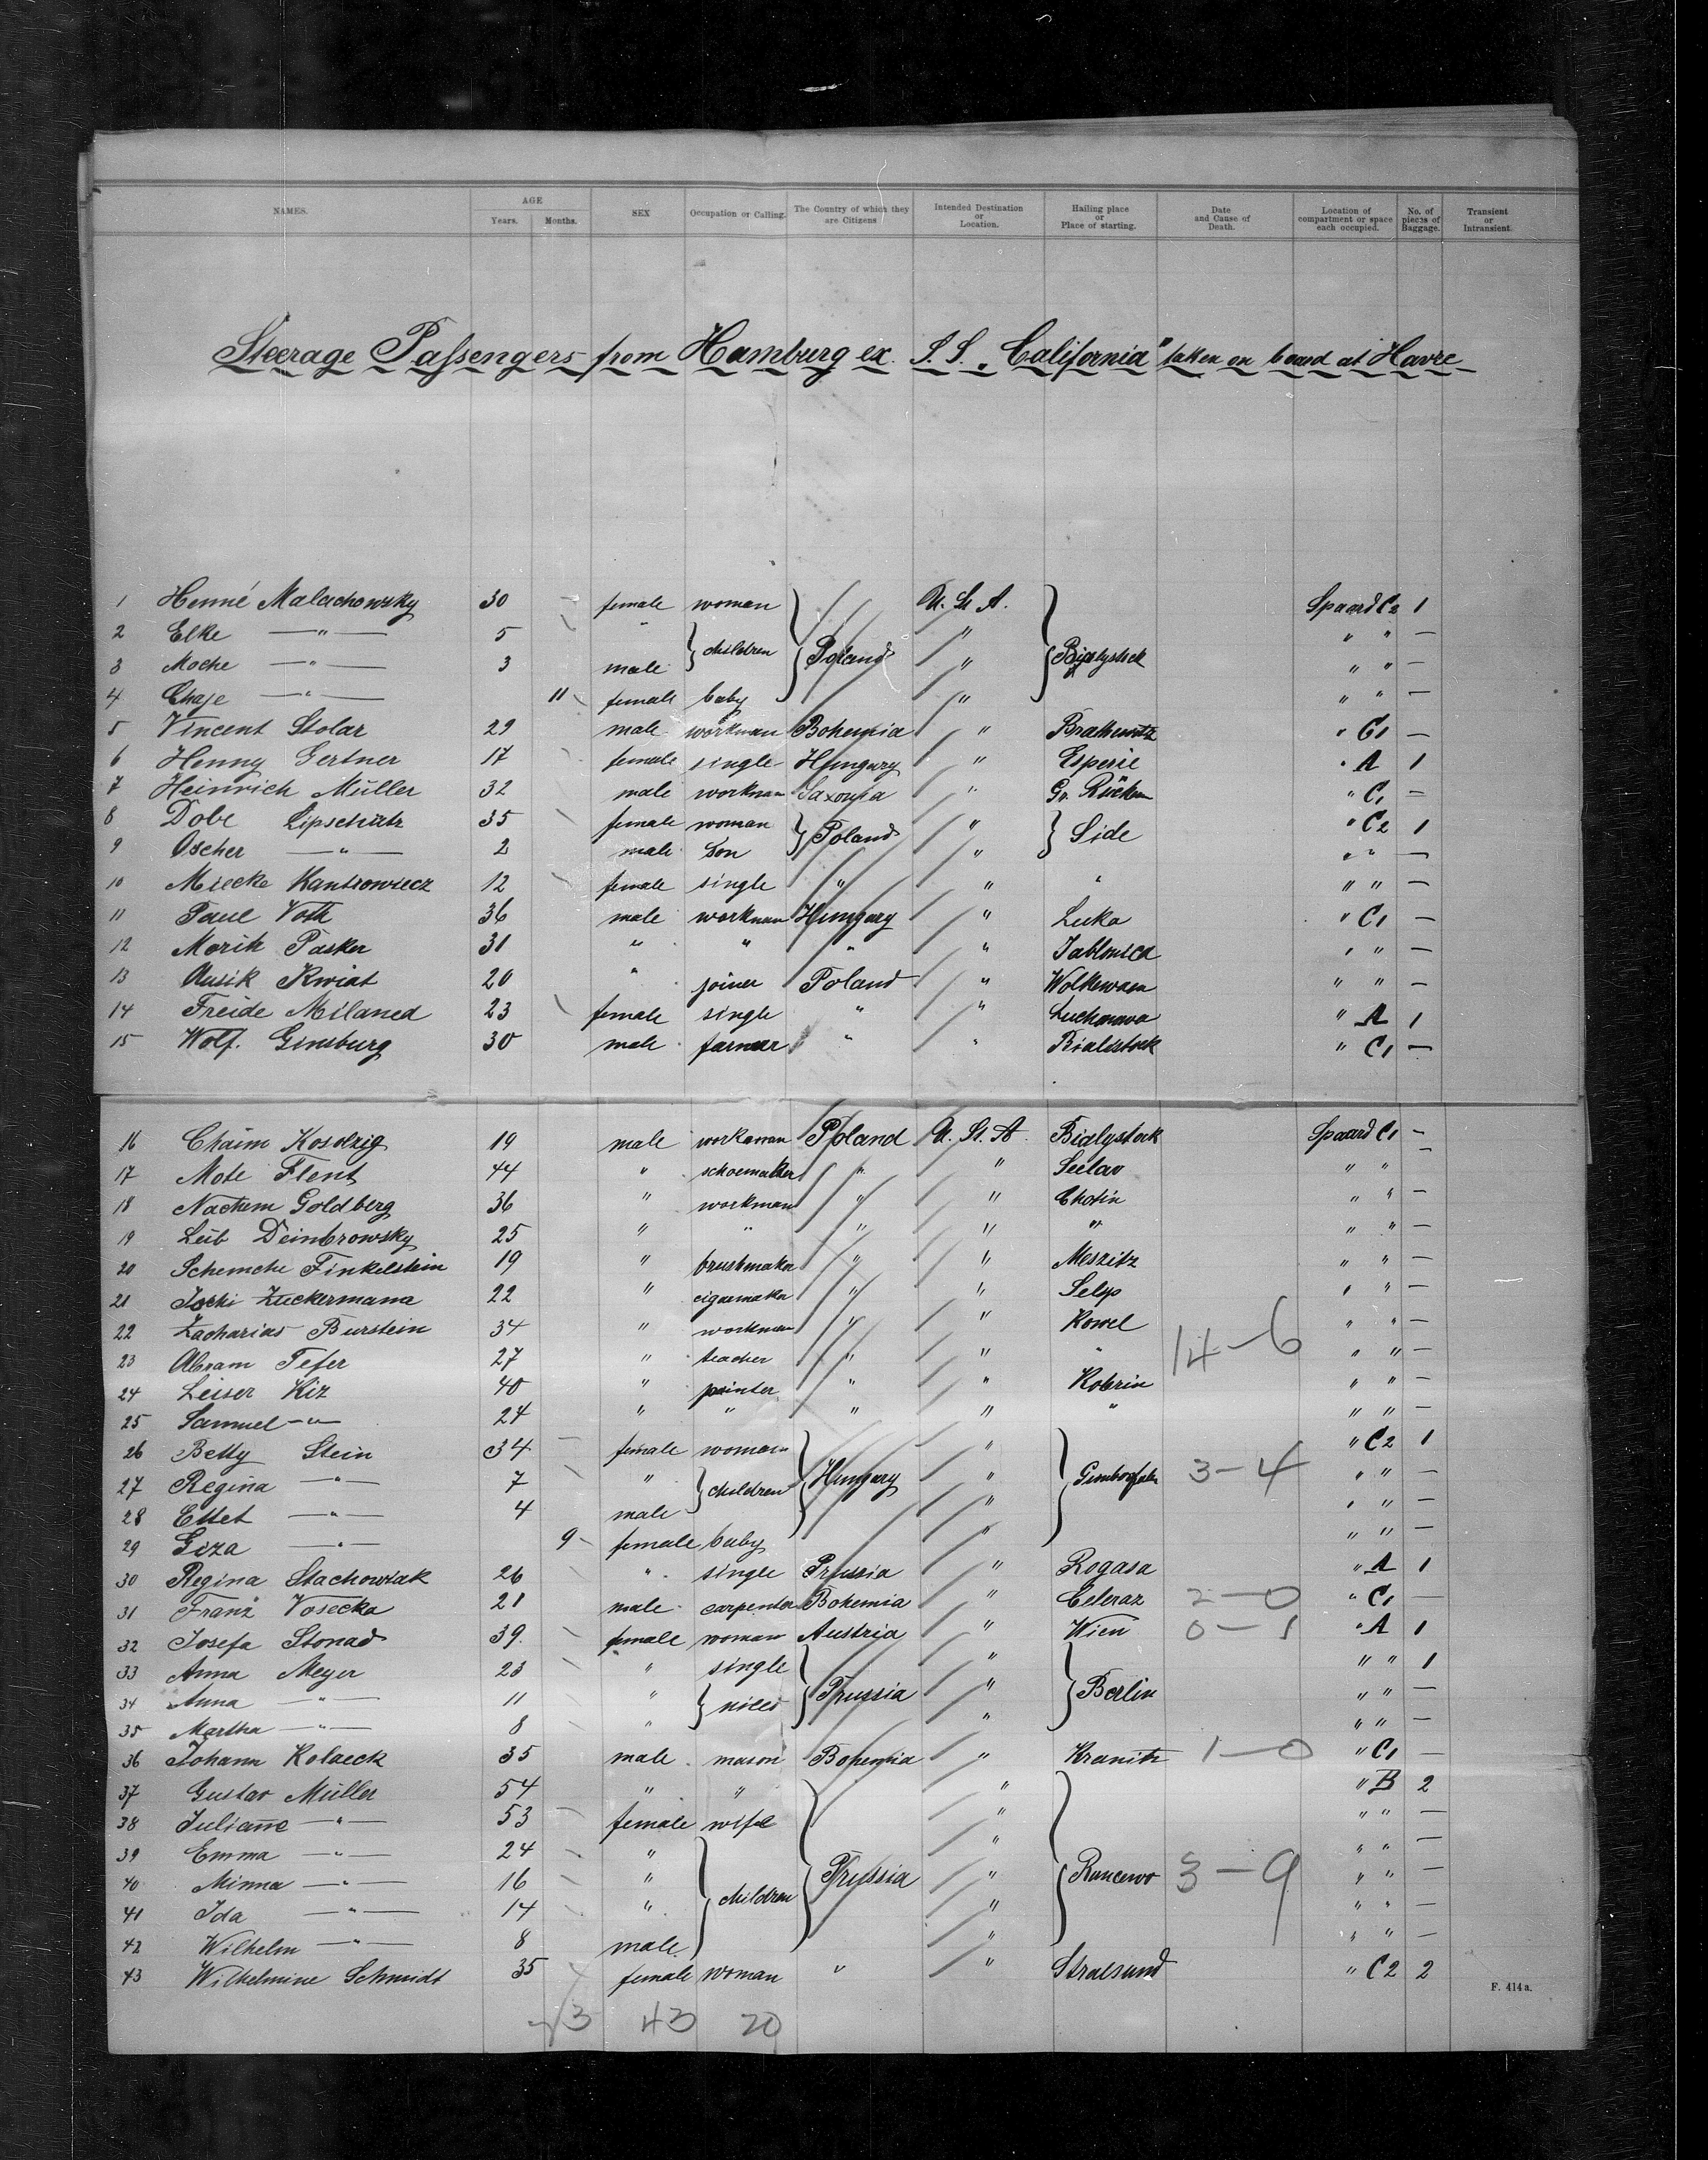 NAMES. AGE Years. Months. SEX Occupation or Calling. The Country of which they are Citizens Intended Destination or Location. Hailing place or Place of starting. Date and Cause of Death. Location of compartment or space each occupied. No. of pieces of Baggage. Transient or Intransient.
Steerage Passengers from Hamburg ex. S. S. „California" taken on board at Havre
1 Henné Malachowsky 30 female woman U. St. A. C2 1
2 Elke —"— 5 " children Poland " Bialystock " " —
3 Moche —"— 3 male " " " —
4 Chaje —"— 11 female baby " " " —
5 Vincent Stolar 29 male workman Bohemia " " C1 —
6 Henny Gertner 17 female single Hungary " Esperie " A 1
7 Heinrich Müller 32 male workman Saxonia " Gr. " C1 —
8 Dobe Lipschütz 35 female woman Poland " Side " C2 1
9 Oscher —"— 2 male Son " " " —
10 Miecke Kantrowiecz 12 female single " " " " " —
11 Paul Voth 36 male workman Hungary " Luka " C1 —
12 Morih Pasker 31 " " " " Jablonica " " —
13 Ausik Kwiat 20 " joiner Poland " " " —
14 Freide Milaned 23 female single " " " A 1
15 Wolf. Ginsburg 30 male farmer " " Bialistock " C1 —
16 Chaim Kosolzig 19 male workman Poland U. St. A. Bialystock C1 —
17 Mote Flent 44 " schoemaker " " " " —
18 Nachem Goldberg 36 " workman " " Chotin " " —
19 Leib Deimbrowsky 25 " " " " " " " —
20 Schemche Finkelstein 19 " brushmaker " " Meszitz " " —
21 Zuckermann 22 " cigarmaker " " Selyo " " —
22 Zacharias Burstein 34 " workman " " Kowel " " —
14 – 6
23 Abram Tefer 27 " teacher " " " " " —
24 Leiser Kiz 40 " painter " " Kobrin " " —
25 Samuel —"— 24 " " " " " " " —
26 Betty Stein 34 female woman " " C2 1
27 Regina —"— 7 " children Hungary " 3 – 4 " " —
28 Ettet —"— 4 male " " " —
29 Giza —"— 9 female baby " " " —
30 Regina Stachowiak 26 " single Prussia " Rogasa " A 1
31 Franz Vosecka 21 male carpenter Bohemia " Celeraz 2 – 0 " C1 —
32 Josefa Stonad 39 female woman Austria " Wien 0 – 1 " A 1
33 Anna Meyer 23 " single " " " 1
34 Anna —"— 11 " nices Prussia " Berlin " " —
35 Martha —"— 8 " " " " —
36 Johann Kolaeck 35 male mason Bohemia " Kranitz 1 – 0 " C1 —
37 Gustav Müller 54 " " " " B 2
38 Julianne —"— 53 female wife " " " —
39 Emma —"— 24 " " " " —
40 Minna —"— 16 " children Prussia " Runcewo 3 – 9 " " —
41 Ida —"— 14 " " " " —
42 Wilhelm —"— 8 male " " " —
43 Wilhelmine Schmidt 35 female woman " " Stralsund " C2 2
F. 414a.
43 20